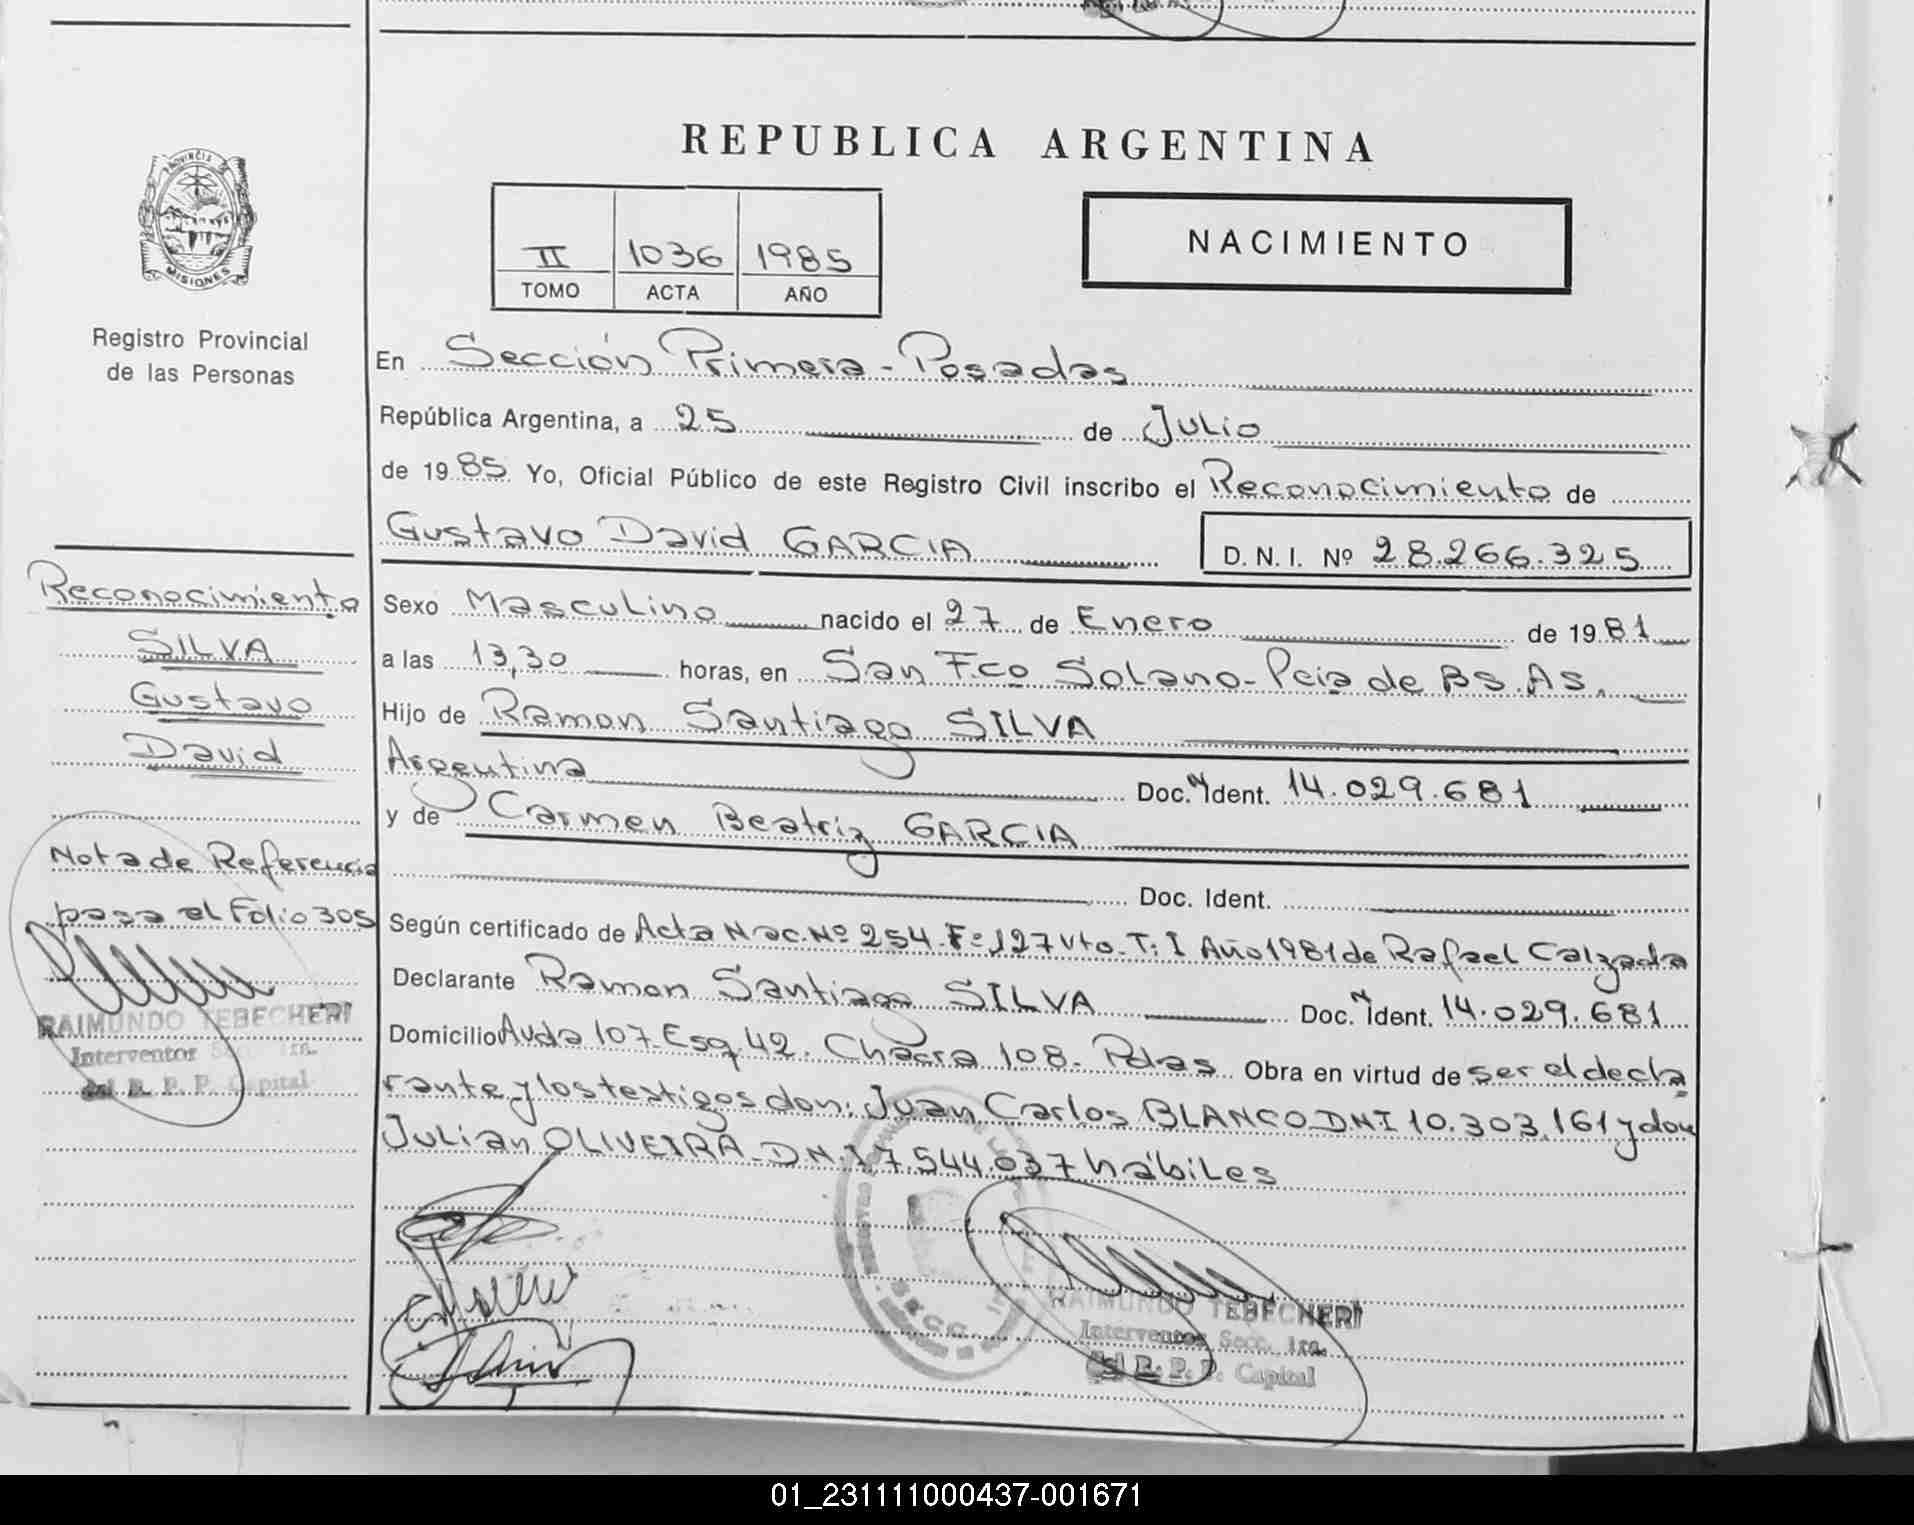 REPUBLICA ARGENTINA
PROVINCIA
MISIONES
Registro Provincial
de las Personas
II 1036 1985
TOMO ACTA AÑO
NACIMIENTO
En Sección Primera - Posadas
República Argentina, a 25 de Julio
de 1985 Yo, Oficial Público de este Registro Civil inscribo el Reconocimiento de
Gustavo David GARCIA D.N.I. Nº 28.266.325
Sexo Masculino nacido el 27 de Enero de 1981
a las 13,30 horas, en San Fco Solano - Pcia de Bs. As.
Hijo de Ramon Santiago SILVA
Argentina Doc. N Ident. 14.029.681
y de Carmen Beatriz GARCIA
Doc. Ident.
Según certificado de Acta Nac. Nº 254. Fº 127 Vto. T: I Año 1981 de Rafael Calzada
Declarante Ramon Santiago SILVA Doc. N Ident. 14.029.681
Domicilio Avda 107 Esq. 42. Chacra 108. Pdas Obra en virtud de ser el decla
rante y los testigos don: Juan Carlos BLANCO DNI 10.303.161 y don
Julian OLIVEIRA - DN.I 7.544.037 hábiles
Reconocimiento
SILVA
Gustavo
David
Nota de Referencia
pasa al Folio 305
RAIMUNDO TEBECHERI
Interventor Secc. 1ra.
del R. P. P. Capital
RAIMUNDO TEBECHERI
Interventor Secc. 1ra.
del R. P. P. Capital
01_231111000437-001671